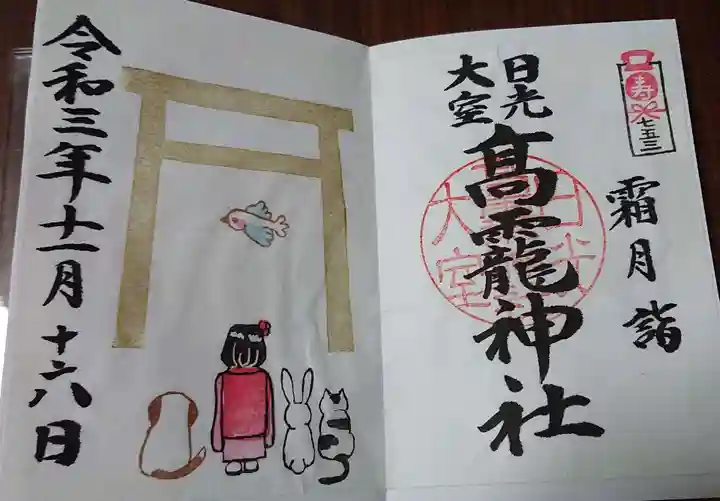 寿
七五三
霜月 詣
日光
大室
高龗神社
日光
大室
令和三年十一月十六日